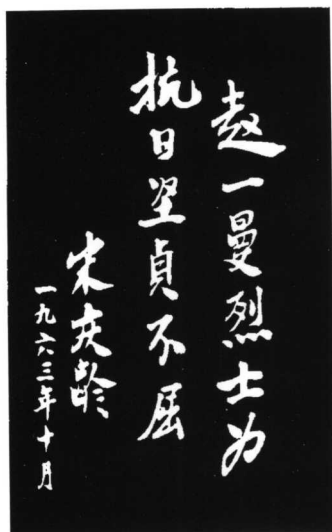 赵一曼烈士为
抗日坚貞不屈
宋庆龄
一九六三年十月